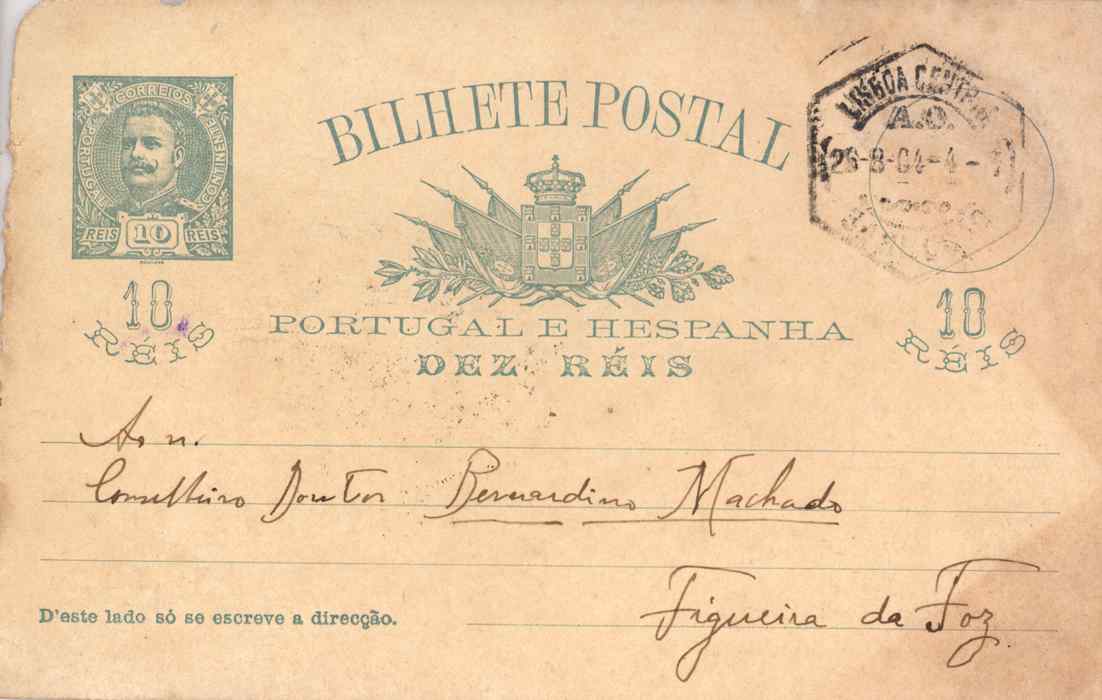 CORREIOS
PORTUGAL
CONTINENTE
REIS 10 REIS
BILHETE POSTAL
LISBOA CENTRAL
A.O.
26-8-04-4-
PORTUGAL E HESPANHA
DEZ RÉIS
10
RÉIS
10
RÉIS
Conselheiro Doutor Bernardino Machado
Figueira da Foz
D'este lado só se escreve a direcção.